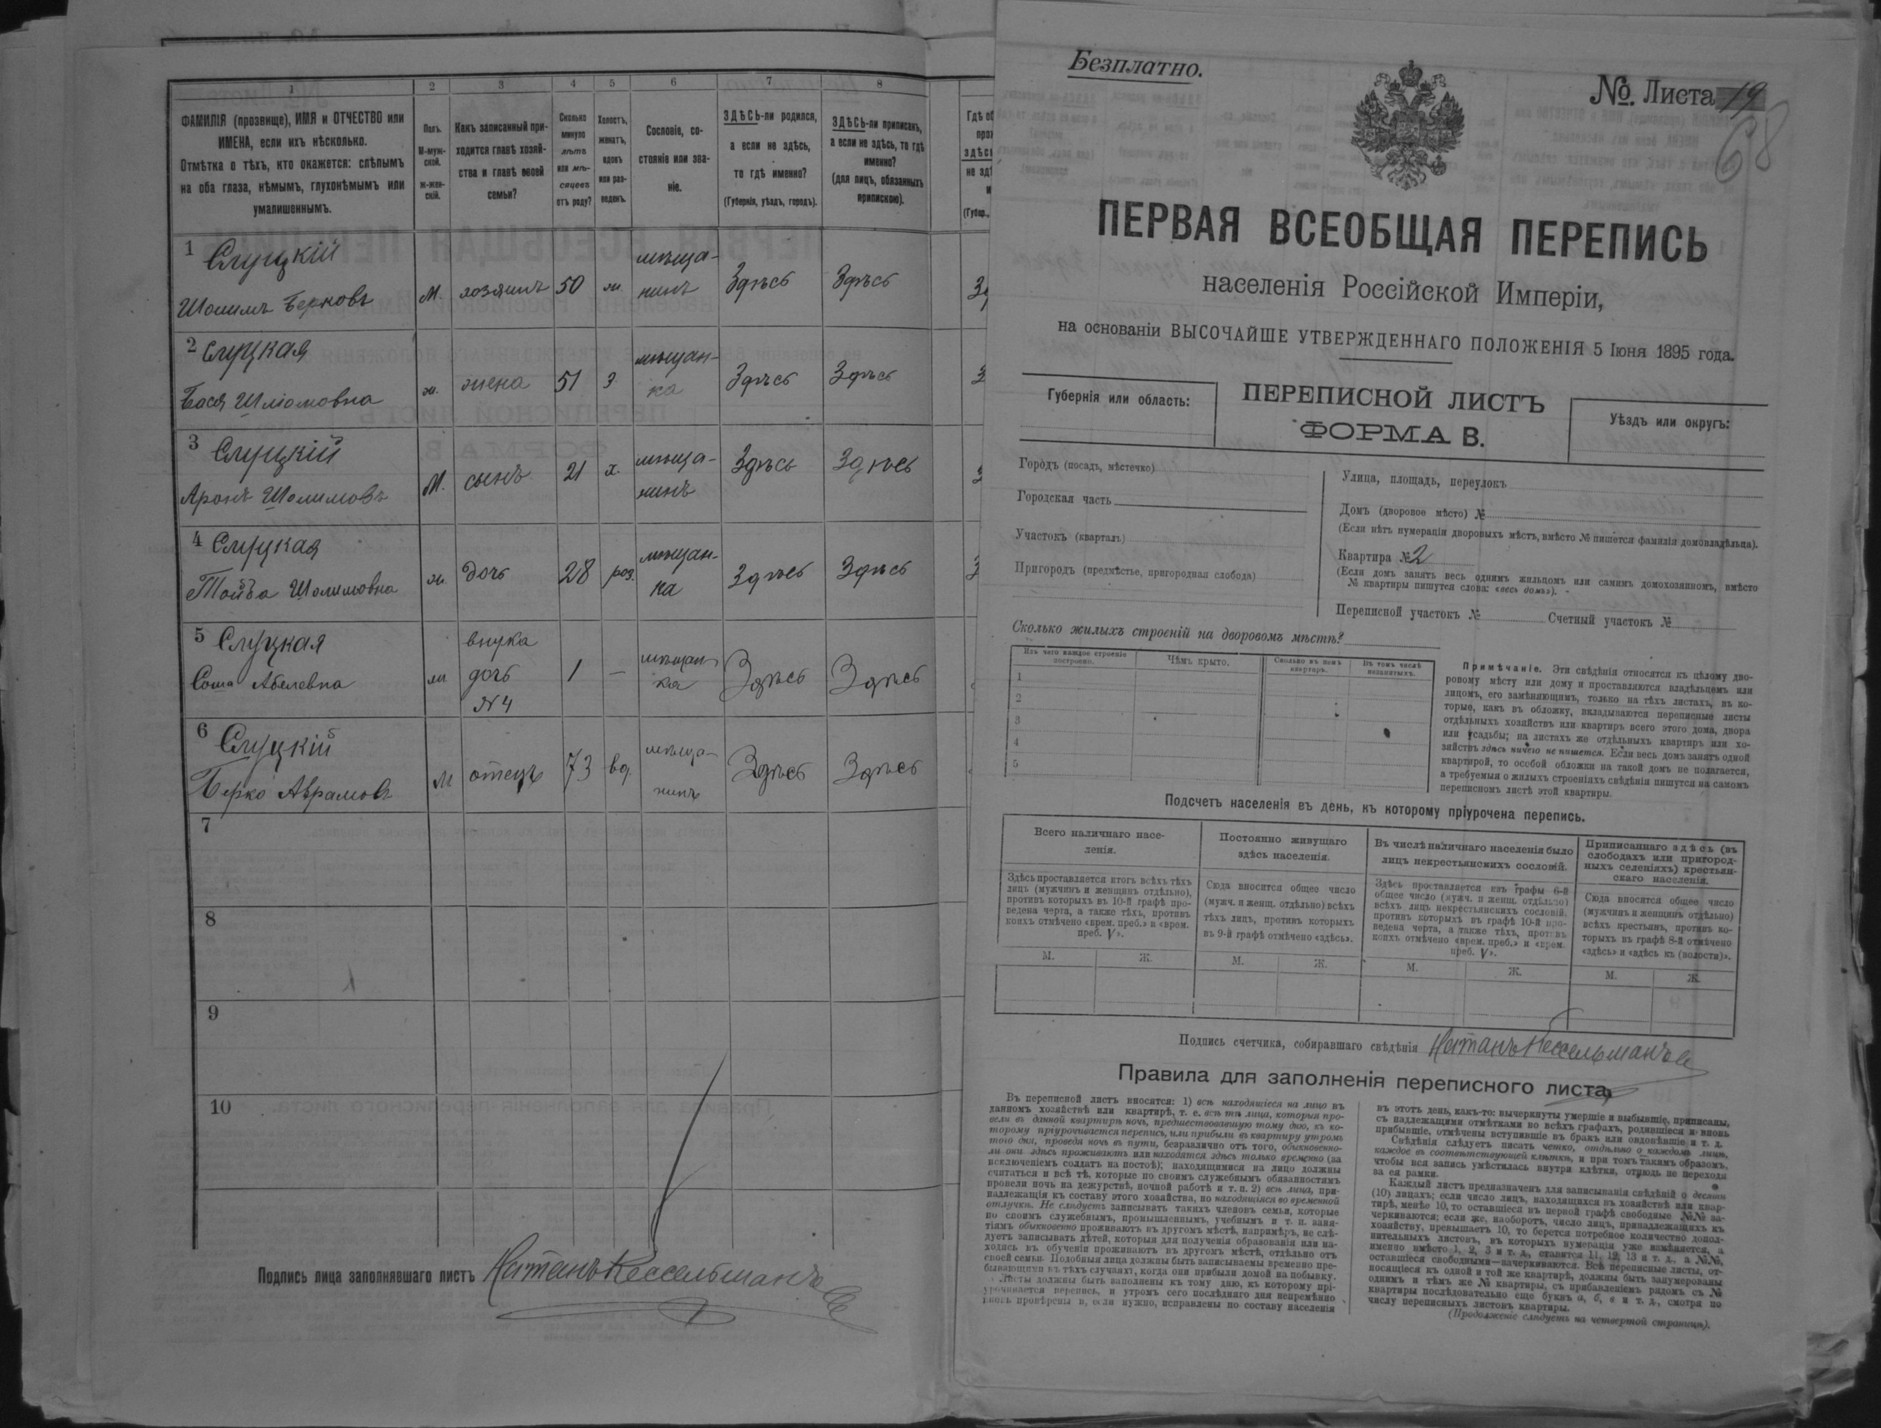 1
2
3
4
5
6
7
8
ФАМИЛІЯ (прозвище), ИМЯ и ОТЧЕСТВО или
ИМЕНА, если ихъ нѣсколько.
Отмѣтка о тѣхъ, кто окажется: слѣпымъ
на оба глаза, нѣмымъ, глухонѣмымъ или
умалишеннымъ.
Полъ.
М-муж-
ской.
ж-жен-
скій.
Какъ записанный при-
ходится главѣ хозяй-
ства и главѣ своей
семьи?
Сколько
минуло
лѣтъ
или мѣ-
сяцевъ
отъ роду?
Холостъ,
женатъ,
вдовъ
или раз-
веденъ.
Сословіе, со-
стояніе или зва-
ніе.
ЗДѢСЬ-ли родился,
а если не здѣсь,
то гдѣ именно?
(Губернія, уѣздъ, городъ).
ЗДѢСЬ-ли приписанъ,
а если не здѣсь, то гдѣ
именно?
(для лицъ, обязанныхъ
припискою).
1 Слуцкій
Шолимъ Берковъ
М. хозяинъ 50 ж. мѣща-
нинъ Здѣсь Здѣсь
2 Слуцкая
Бася Шломовна
ж. жена 51 з. мѣщан-
ка Здѣсь Здѣсь
3 Слуцкій
Аронъ Шолимовъ
М. сынъ 21 х. мѣща-
нинъ Здѣсь Здѣсь
4 Слуцкая
Тойба Шолимовна
ж. дочь 28 раз. мѣщан-
ка Здѣсь Здѣсь
5 Слуцкая
Соша Абелевна
ж внука
дочь
№4 1 — мѣщан
ка Здѣсь Здѣсь
6 Слуцкій
Берко Аврамовъ
М отецъ 73 вд. мѣща-
нинъ Здѣсь Здѣсь
7
8
9
10
Подпись лица заполнявшаго листъ Натанъ Кессельманъ
Безплатно.
№. Листа 19
68
ПЕРВАЯ ВСЕОБЩАЯ ПЕРЕПИСЬ
населенія Россійской Имперіи,
на основаніи ВЫСОЧАЙШЕ УТВЕРЖДЕННАГО ПОЛОЖЕНІЯ 5 Іюня 1895 года.
Губернія или область:
ПЕРЕПИСНОЙ ЛИСТЪ
ФОРМА В.
Уѣздъ или округъ:
Городъ (посадъ, мѣстечко)
Городская часть
Участокъ (кварталъ)
Пригородъ (предмѣстье, пригородная слобода)
Улица, площадь, переулокъ
Домъ (дворовое мѣсто) №
(Если нѣтъ нумераціи дворовыхъ мѣстъ, вмѣсто № пишется фамилія домовладѣльца).
Квартира № 2
(Если домъ занятъ весь однимъ жильцомъ или самимъ домохозяиномъ, вмѣсто
№ квартиры пишутся слова: «весь домъ»).
Переписной участокъ № Счетный участокъ №
Сколько жилыхъ строеній на дворовомъ мѣстѣ?
Изъ чего каждое строеніе
построено.
Чѣмъ крыто.
Сколько въ немъ
квартиръ.
Въ томъ числѣ
незанятыхъ.
1
2
3
4
5
Примѣчаніе. Эти свѣдѣнія относятся къ цѣлому дво-
ровому мѣсту или дому и проставляются владѣльцемъ или
лицомъ, его замѣняющимъ, только на тѣхъ листахъ, въ ко-
торые, какъ въ обложку, вкладываются переписные листы
отдѣльныхъ хозяйствъ или квартиръ всего этого дома, двора
или усадьбы; на листахъ же отдѣльныхъ квартиръ или хо-
зяйствъ здѣсь ничего не пишется. Если весь домъ занятъ одной
квартирой, то особой обложки на такой домъ не полагается,
а требуемыя о жилыхъ строеніяхъ свѣдѣнія пишутся на самомъ
переписномъ листѣ этой квартиры.
Подсчетъ населенія въ день, къ которому пріурочена перепись.
Всего наличнаго насе-
ленія.
Постоянно живущаго
здѣсь населенія.
Въ числѣ наличнаго населенія было
лицъ некрестьянскихъ сословій.
Приписаннаго здѣсь (въ
слободахъ или пригород-
ныхъ селеніяхъ) крестьян-
скаго населенія.
Здѣсь проставляется итогъ всѣхъ тѣхъ
лицъ (мужчинъ и женщинъ отдѣльно),
противъ которыхъ въ 10-й графѣ про-
ведена черта, а также тѣхъ, противъ
коихъ отмѣчено «врем. преб.» и «врем.
преб. V».
Сюда вносится общее число
(мужч. и женщ. отдѣльно) всѣхъ
тѣхъ лицъ, противъ которыхъ
въ 9-й графѣ отмѣчено «здѣсь».
Здѣсь проставляется изъ графы 6-й
общее число (мужч. и женщ. отдѣльно)
всѣхъ лицъ некрестьянскихъ сословій,
противъ которыхъ въ графѣ 10-й про-
ведена черта, а также тѣхъ, противъ
коихъ отмѣчено «врем. преб.» и «врем.
преб. V».
Сюда вносится общее число
(мужчинъ и женщинъ отдѣльно)
всѣхъ крестьянъ, противъ ко-
торыхъ въ графѣ 8-й отмѣчено
«здѣсь» и «здѣсь къ (волости)».
М. Ж. М. Ж. М. Ж. М. Ж.
Подпись счетчика, собиравшаго свѣдѣнія Натанъ Кессельманъ
Правила для заполненія переписного листа.
Въ переписной листъ вносятся: 1) всѣ находящіеся на лицо въ
данномъ хозяйствѣ или квартирѣ, т. е. всѣ тѣ лица, которыя про-
вели въ данной квартирѣ ночь, предшествовавшую тому дню, къ ко-
торому пріурочивается перепись, или прибыли въ квартиру утромъ
того дня, проведя ночь въ пути, безразлично отъ того, обыкновенно-
ли они здѣсь проживаютъ или находятся здѣсь только временно (за
исключеніемъ солдатъ на постоѣ); находящимися на лицо должны
считаться и всѣ тѣ, которые по своимъ служебнымъ обязанностямъ
провели ночь на дежурствѣ, ночной работѣ и т. п. 2) всѣ лица, при-
надлежащія къ составу этого хозяйства, но находящіяся во временной
отлучкѣ. Не слѣдуетъ записывать такихъ членовъ семьи, которые
по своимъ служебнымъ, промышленнымъ, учебнымъ и т. п. заня-
тіямъ обыкновенно проживаютъ въ другомъ мѣстѣ, напримѣръ, не слѣ-
дуетъ записывать дѣтей, которыя для полученія образованія или на-
ходясь въ обученіи проживаютъ въ другомъ мѣстѣ, отдѣльно отъ
своей семьи. Подобныя лица должны быть записываемы временно пре-
бывающими въ тѣхъ случаяхъ, когда они прибыли домой на побывку.
Листы должны быть заполнены къ тому дню, къ которому прі-
урочивается перепись, и утромъ сего послѣдняго дня непремѣнно
вновь провѣрены и, если нужно, исправлены по составу населенія
въ этотъ день, какъ-то: вычеркнуты умершіе и выбывшіе, приписаны,
съ надлежащими отмѣтками во всѣхъ графахъ, родившіеся и вновь
прибывшіе, отмѣчены вступившіе въ бракъ или овдовѣвшіе и т. д.
Свѣдѣнія слѣдуетъ писать четко, отдѣльно о каждомъ лицѣ,
каждое въ соотвѣтствующей клѣткѣ, и при томъ такимъ образомъ,
чтобы вся запись умѣстилась внутри клѣтки, отнюдь не переходя
за ея рамки.
Каждый листъ предназначенъ для записыванія свѣдѣній о десяти
(10) лицахъ; если число лицъ, находящихся въ хозяйствѣ или квар-
тирѣ, менѣе 10, то оставшіеся въ первой графѣ свободные №№ за-
черкиваются; если же, наоборотъ, число лицъ, принадлежащихъ къ
хозяйству, превышаетъ 10, то берется потребное количество допол-
нительныхъ листовъ, въ которыхъ нумерація уже измѣняется, а
именно вмѣсто 1, 2, 3 и т. д., ставится 11, 12, 13 и т. д., а №№,
оставшіеся свободными—зачеркиваются. Всѣ переписные листы, от-
носящіеся къ одной и той же квартирѣ, должны быть занумерованы
однимъ и тѣмъ же № квартиры, съ прибавленіемъ рядомъ съ №
квартиры послѣдовательно еще буквъ а, б, в и т. д., смотря по
числу переписныхъ листовъ квартиры.
(Продолженіе слѣдуетъ на четвертой страницѣ).